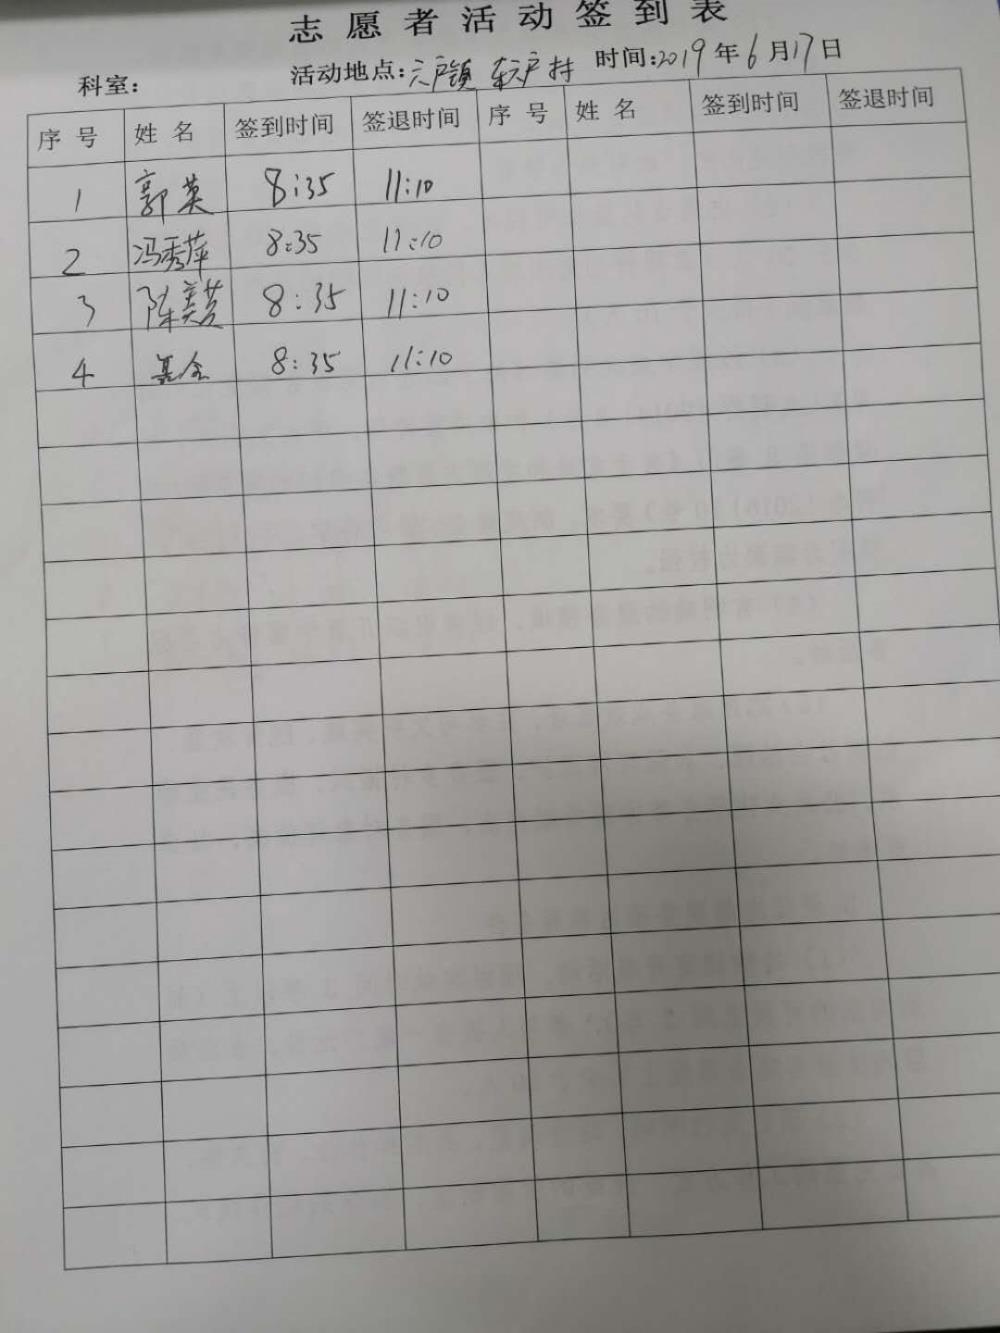 志愿者活动签到表
科室： 活动地点:六户镇 东六户村 时间:2019年6月17日
序号 姓名 签到时间 签退时间 序号 姓名 签到时间 签退时间
1 郭英 8:35 11:10
2 冯秀萍 8:35 11:10
3 陈美芸 8:35 11:10
4 8:35 11:10